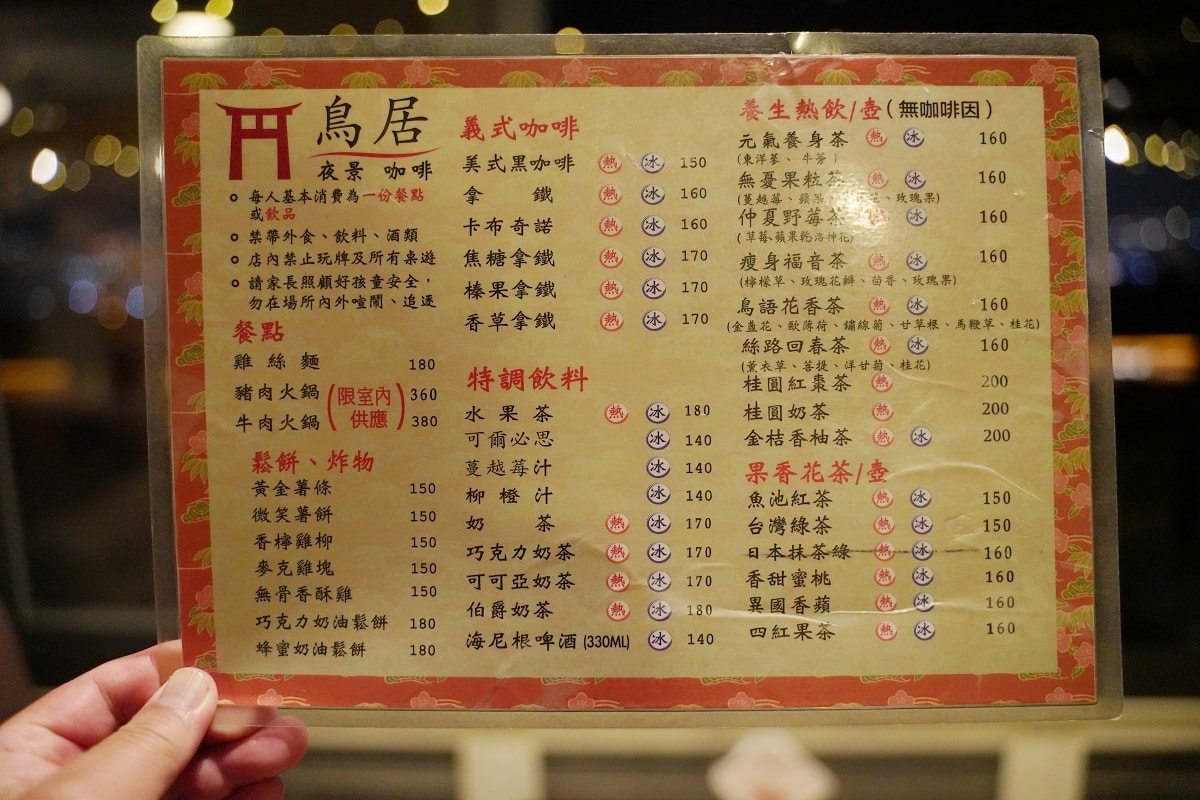 鳥居
夜景 咖啡
每人基本消費為一份餐點
或飲品
禁帶外食、飲料、酒類
店內禁止玩牌及所有桌遊
請家長照顧好孩童安全,
勿在場所內外喧鬧、追逐
餐點
雞絲麵 180
豬肉火鍋 (限室內 360
牛肉火鍋 供應) 380
鬆餅、炸物
黃金薯條 150
微笑薯餅 150
香檸雞柳 150
麥克雞塊 150
無骨香酥雞 150
巧克力奶油鬆餅 180
蜂蜜奶油鬆餅 180
義式咖啡
美式黑咖啡 熱 冰 150
拿鐵 熱 冰 160
卡布奇諾 熱 冰 160
焦糖拿鐵 熱 冰 170
榛果拿鐵 熱 冰 170
香草拿鐵 熱 冰 170
特調飲料
水果茶 熱 冰 180
可爾必思 冰 140
蔓越莓汁 冰 140
柳橙汁 冰 140
奶茶 熱 冰 170
巧克力奶茶 熱 冰 170
可可亞奶茶 熱 冰 170
伯爵奶茶 熱 冰 180
海尼根啤酒 (330ML) 冰 140
養生熱飲/壺(無咖啡因)
元氣養身茶 熱 冰 160
(東洋蔘、牛蒡)
無憂果粒茶 熱 冰 160
(蔓越莓、蘋果、玫瑰果)
仲夏野莓茶 熱 冰 160
(草莓、蘋果乾、洛神花)
瘦身福音茶 熱 冰 160
(檸檬草、玫瑰花瓣、茴香、玫瑰果)
鳥語花香茶 熱 冰 160
(金盞花、歐薄荷、鏽線菊、甘草根、馬鞭草、桂花)
絲路回春茶 熱 冰 160
(薰衣草、菩提、洋甘菊、桂花)
桂圓紅棗茶 熱 200
桂圓奶茶 熱 200
金桔香柚茶 熱 冰 200
果香花茶/壺
魚池紅茶 熱 冰 150
台灣綠茶 熱 冰 150
日本抹茶綠 熱 冰 160
香甜蜜桃 熱 冰 160
異國香蘋 熱 冰 160
四紅果茶 熱 冰 160